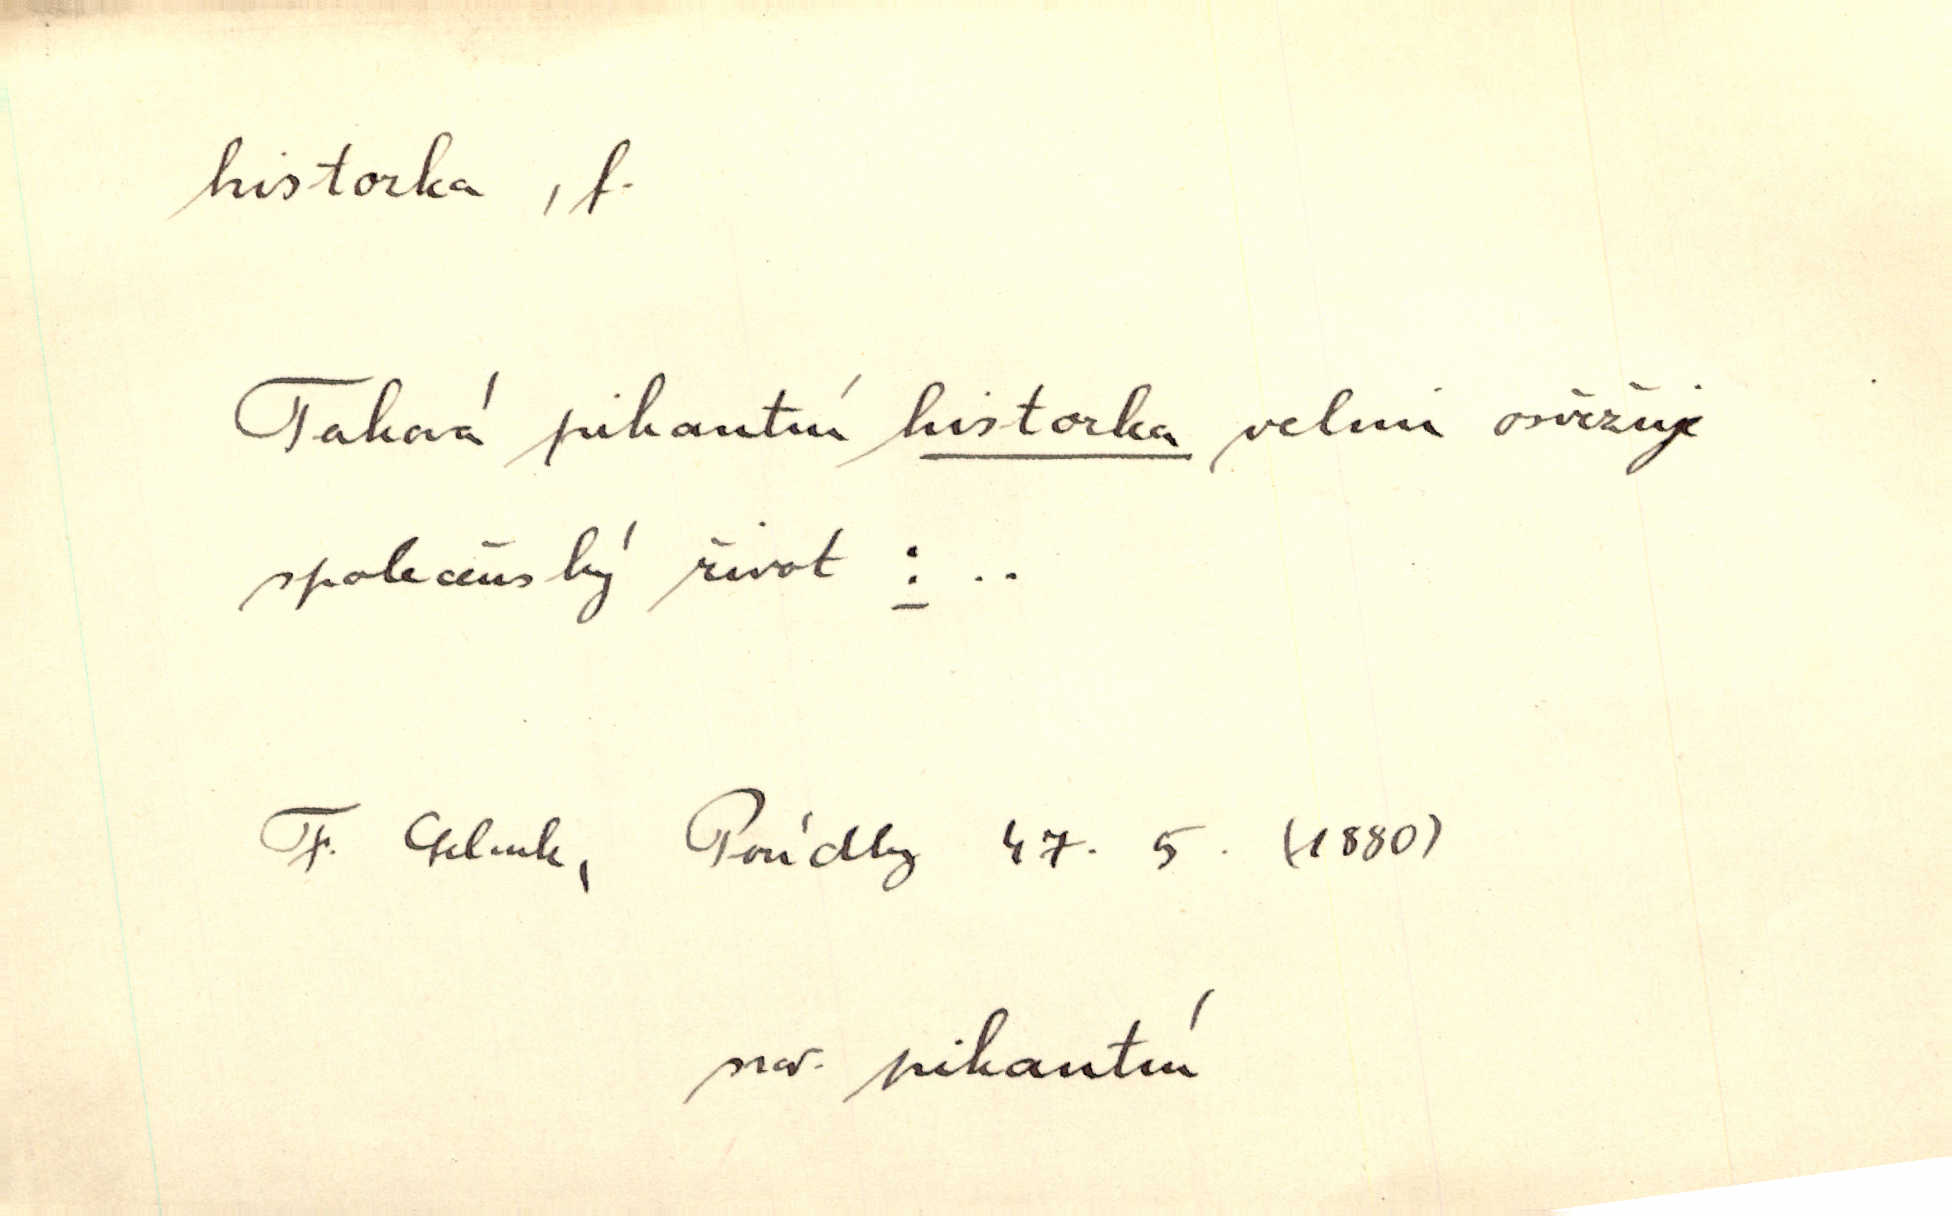 historka, f.
Taková pikantní historka velmi osvěžuje
společenský život : ..
F. Povídky 47. 5. (1880)
sv. pikantní